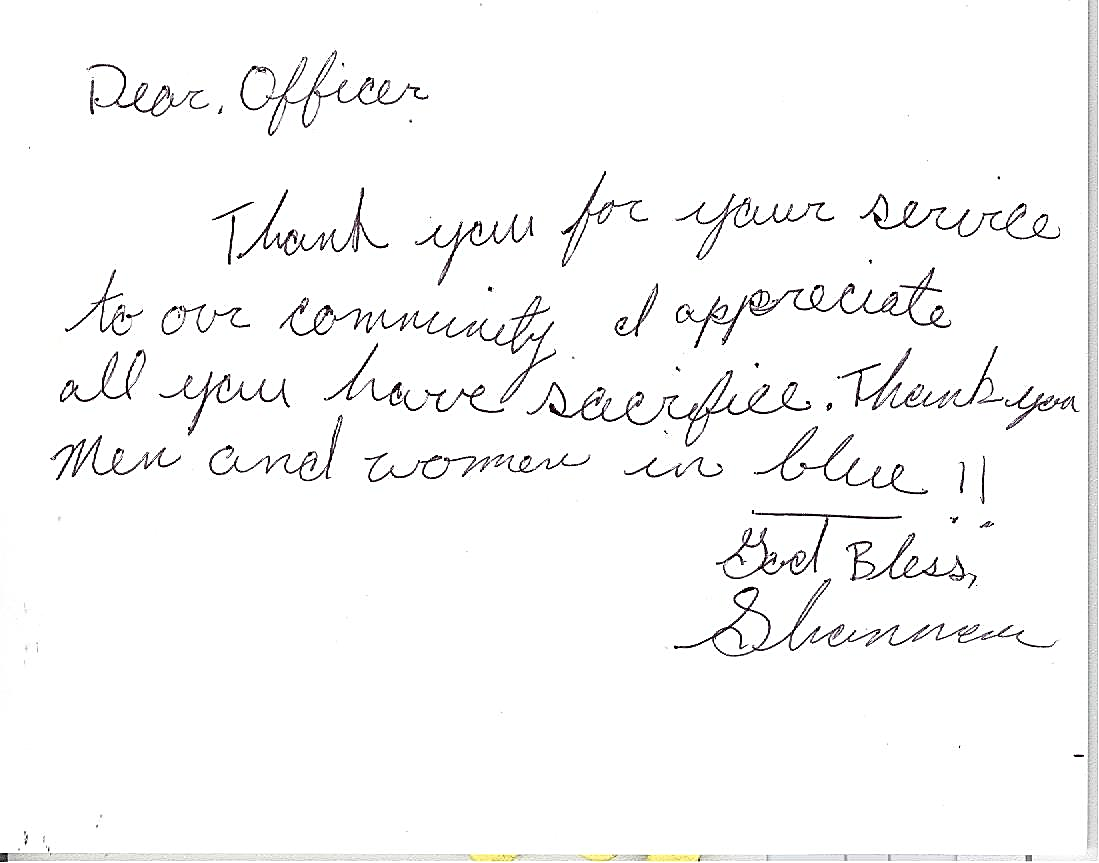 Dear, Officer
Thank you for your service
to our community. I appreciate
all you have sacrifice. Thank you
Men and women in blue !!
God Bless,
Shannon